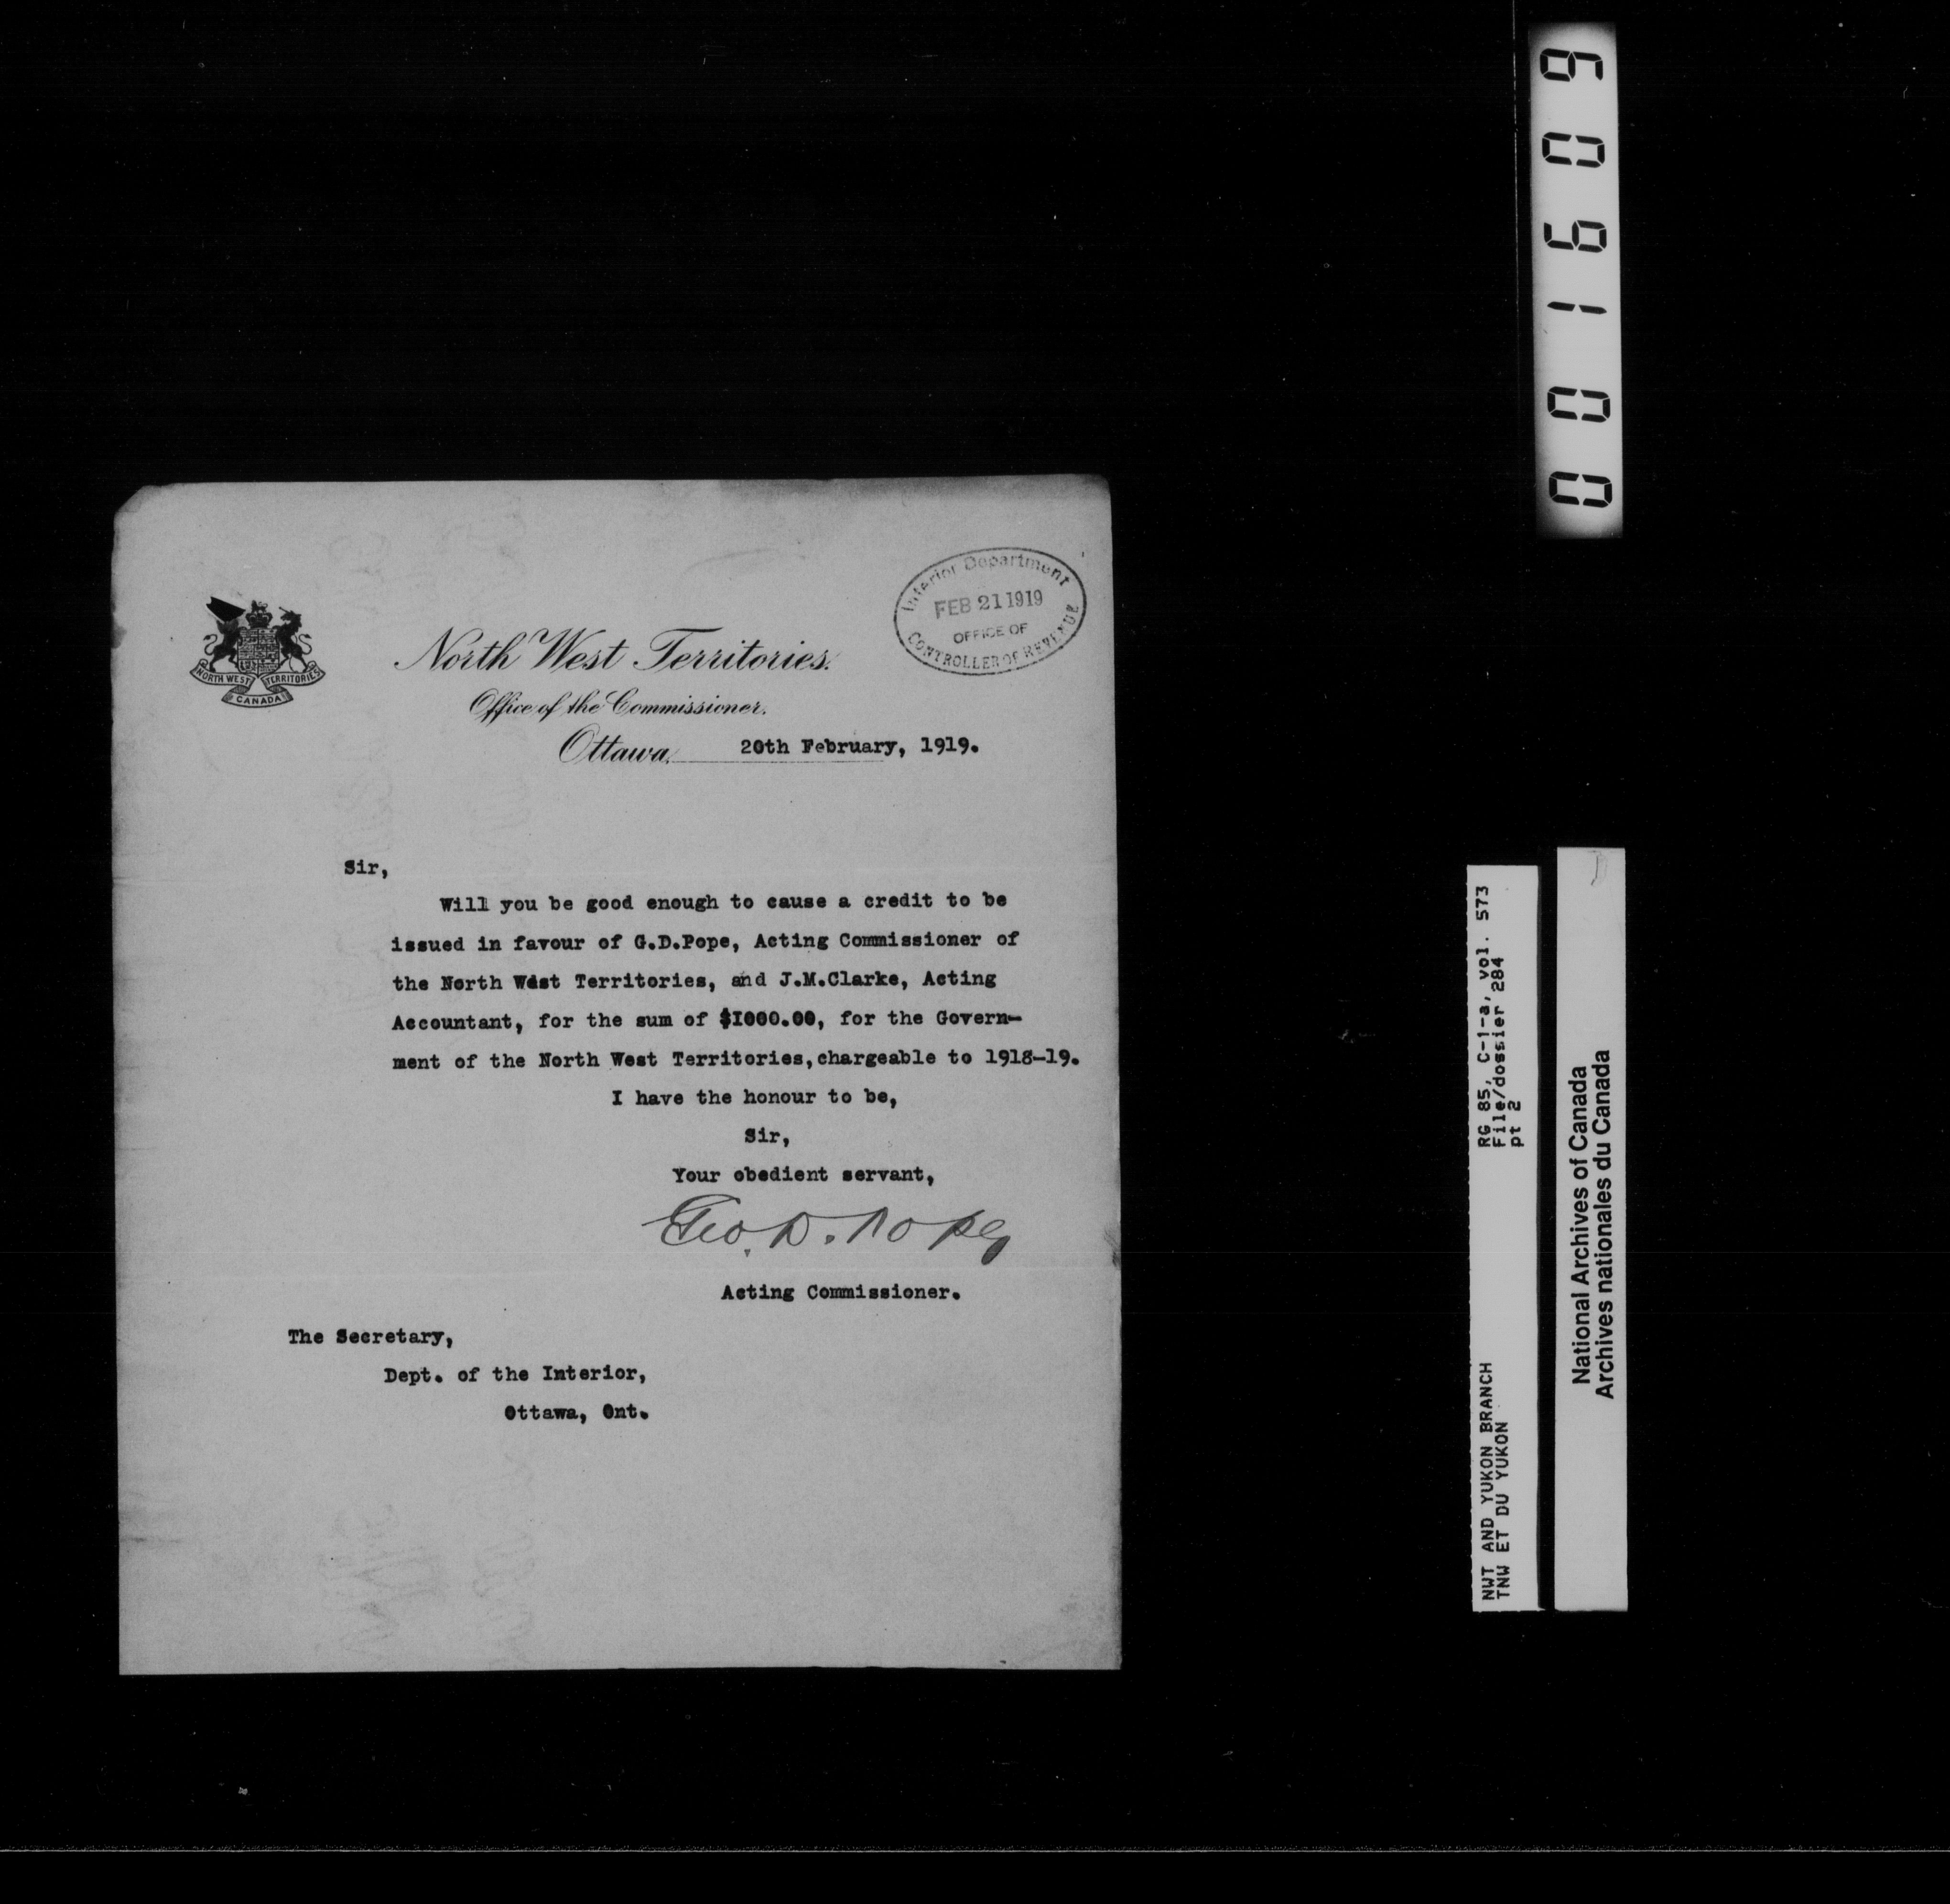 Interior Department
FEB 21 1919
OFFICE OF
CONTROLLER OF REVENUE
NORTH WEST TERRITORIES
CANADA
North West Territories.
Office of the Commissioner.
Ottawa, 20th February, 1919.
Sir,
Will you be good enough to cause a credit to be
issued in favour of G.D.Pope, Acting Commissioner of
the North West Territories, and J.M.Clarke, Acting
Accountant, for the sum of $1000.00, for the Govern-
ment of the North West Territories, chargeable to 1918-19.
I have the honour to be,
Sir,
Your obedient servant,
Geo. D. Pope
Acting Commissioner.
The Secretary,
Dept. of the Interior,
Ottawa, Ont.
001609
NWT AND YUKON BRANCH RG 85, C-1-a, vol. 573
TNW ET DU YUKON File/dossier 284
pt 2
National Archives of Canada
Archives nationales du Canada